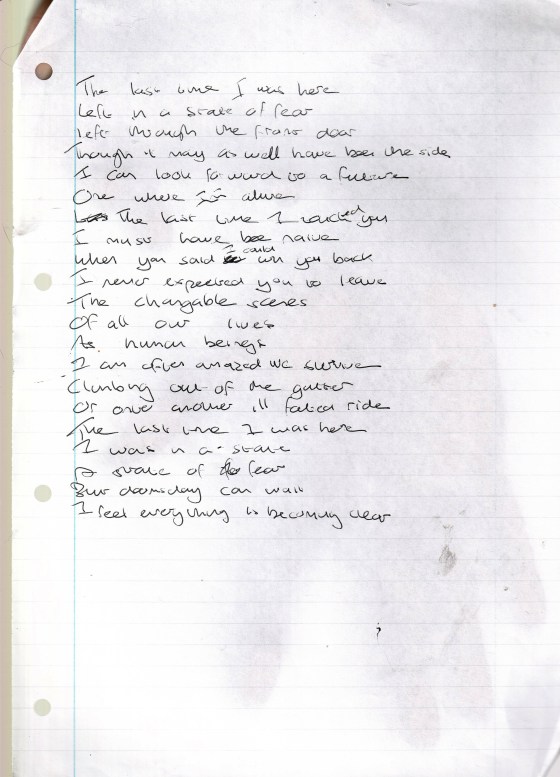 The last time I was here
Left in a state of fear
left through the front door
though it may as well have been the side
I can look forward to a future
One where alive
The last time I you
I must have been naive
when you said I could win you back
I never expected you to leave
The changable scenes
Of all our lives
As human beings
I am often amazed we survive
Climbing out of the gutter
Or onto another ill fated ride
The last time I was here
I was in a state
A state of fear
But doomsday can wait
I feel everything is becoming clear